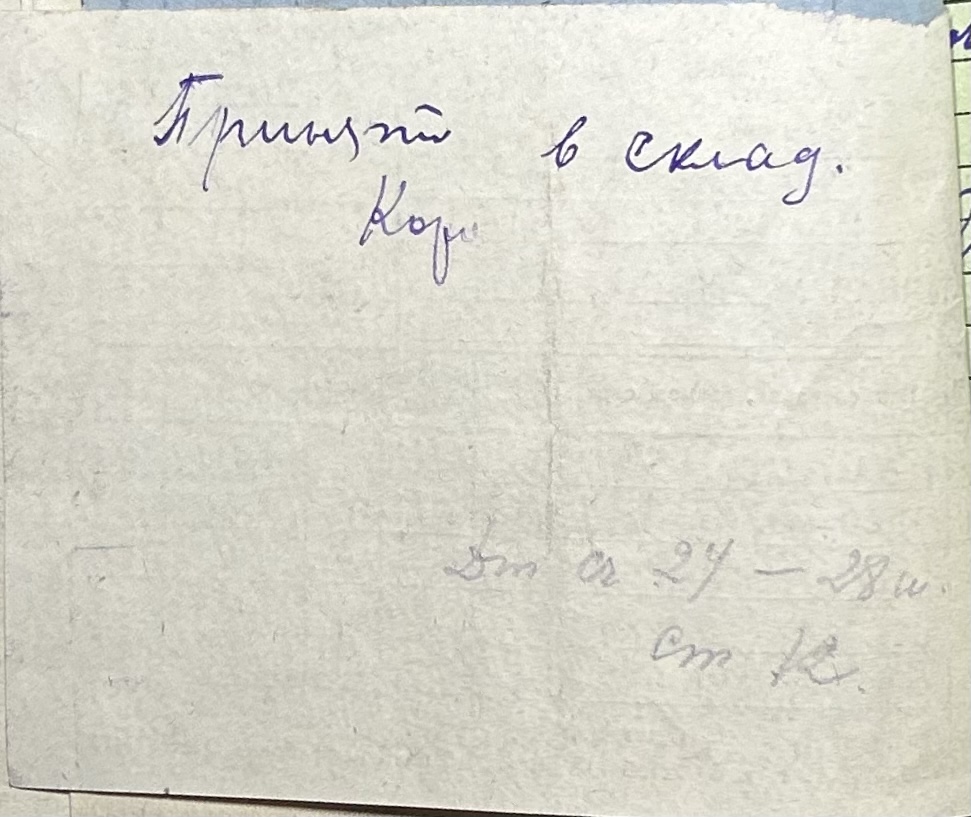 Принять в склад.
Кор
Дт сч 24 — 28 ш.
ст